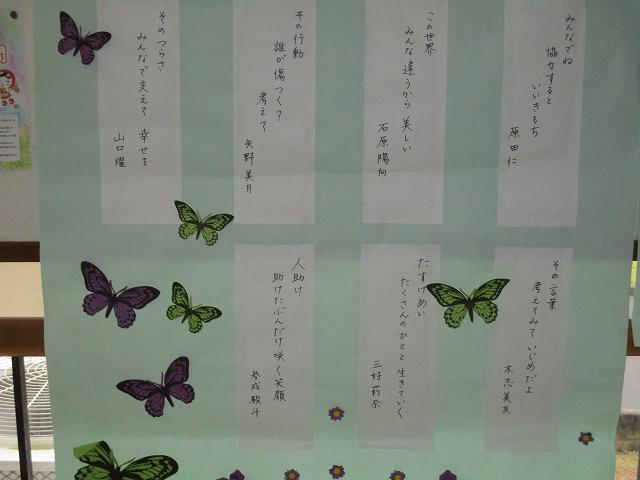 みんなでね
協力すると
いいきもち
原田仁
この世界
みんな違うから美しい
石原陽向
その行動
誰が傷つく？
考えて
矢野美月
そのつらさ
みんなで支えて 幸せを
山口燿
その言葉
考えてみて、いじめだよ
木志美友
たすけあい
たくさんのひとと生きていく
三好莉奈
人助け
助けたぶんだけ咲く笑顔
峯成駿斗